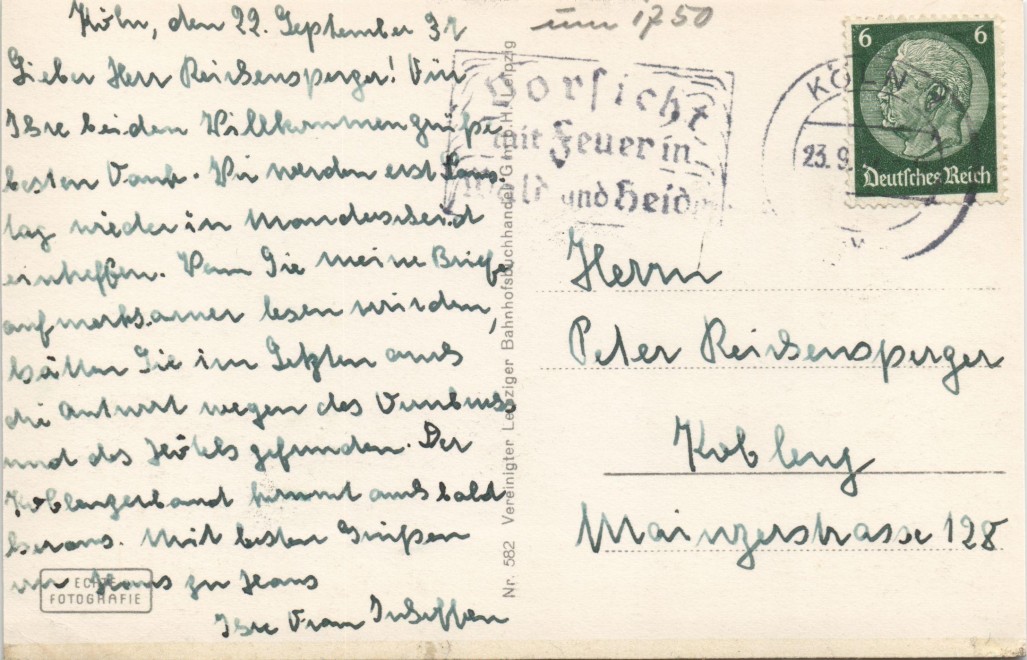 Köln, den 22. September 37
um 1750
Lieber Herr Reichensperger! Für
Ihre beiden Willkommengrüße
besten Dank. Wir werden erst Sams-
tag wieder in Manderscheid
eintreffen. Wenn Sie meine Briefe
aufmerksamer lesen würden,
hätten Sie im Letzten auch
die Antwort wegen des
und des Hotels gefunden. Der
Koblenzerband kommt auch bald
heraus. Mit besten Grüßen
von Haus zu Haus
Ihre
ECHTE
FOTOGRAFIE
Nr. 582 Vereinigter Leipziger Bahnhofsbuchhandel G.m.b.H. Leipzig
Vorsicht
mit Feuer in
Wald und Heide
KÖLN
23.9.
6 6
Deutsches Reich
Herrn
Peter Reichensperger
Koblenz
Mainzerstrasse 128